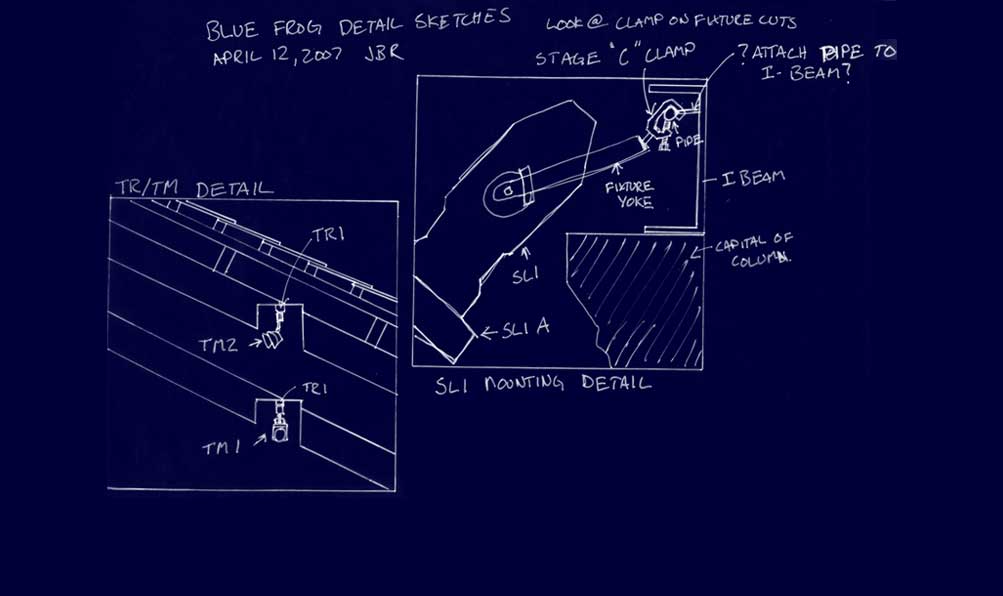 BLUE FROG DETAIL SKETCHES
APRIL 12, 2007 JBR
LOOK @ CLAMP ON FIXTURE CUTS
STAGE "C" CLAMP
? ATTACH PIPE TO
I-BEAM?
PIPE
I BEAM
FIXTURE
YOKE
CAPITAL OF
COLUMN.
SL1
SL1 A
SL1 MOUNTING DETAIL
TR/TM DETAIL
TR1
TM2
TR1
TM1